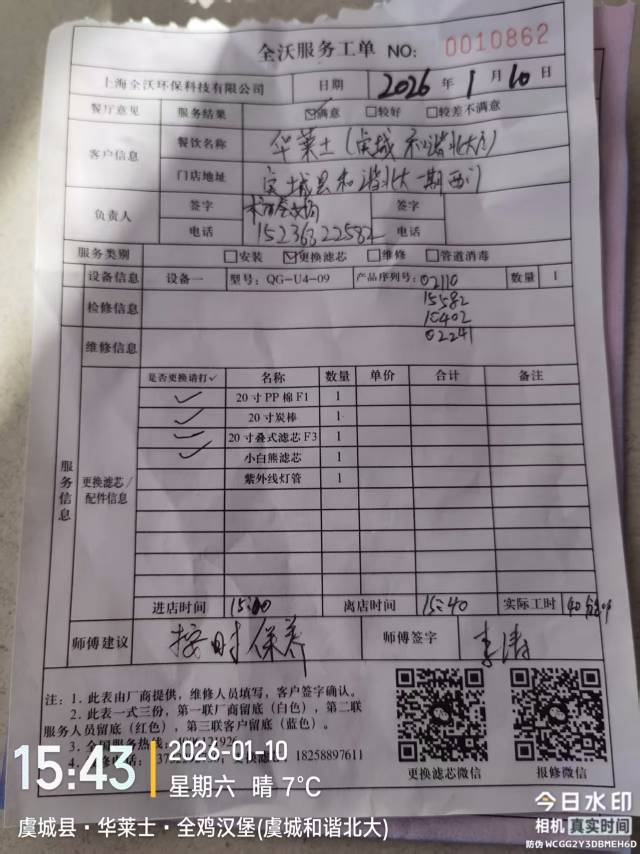 全沃服务工单 NO: 0010862
上海全沃环保科技有限公司 日期 2026 年 1 月 10 日
餐厅意见 服务结果 ☑满意 □较好 □较差不满意
客户信息 餐饮名称 华莱士(虞城和谐北大)
门店地址 虞城县和谐北大一期西门
负责人 签字 签字
电话 15236822582 电话
服务类别 □安装 ☑更换滤芯 □维修 □管道消毒
设备信息 设备一 型号: QG-U4-09 产品序列号: 02110 数量 1
检修信息 15582
15402
维修信息 02241
服务信息 更换滤芯/配件信息
是否更换请打✓ 名称 数量 单价 合计 备注
✓ 20寸PP棉F1 1
✓ 20寸炭棒 1
✓ 20寸叠式滤芯F3 1
✓ 小白熊滤芯 1
紫外线灯管 1
进店时间 15:00 离店时间 15:40 实际工时 40分钟
师傅建议 按时保养 师傅签字 李涛
注: 1. 此表由厂商提供, 维修人员填写, 客户签字确认。
2. 此表一式三份, 第一联厂商留底(白色), 第二联
服务人员留底(红色), 第三联客户留底(蓝色)。
3. 全国服务热线:
4. 18258897611
更换滤芯微信 报修微信
15:43 2026-01-10
星期六 晴 7°C
虞城县·华莱士·全鸡汉堡(虞城和谐北大)
今日水印
相机 真实时间
防伪 WCGG2Y3DBMEH6D